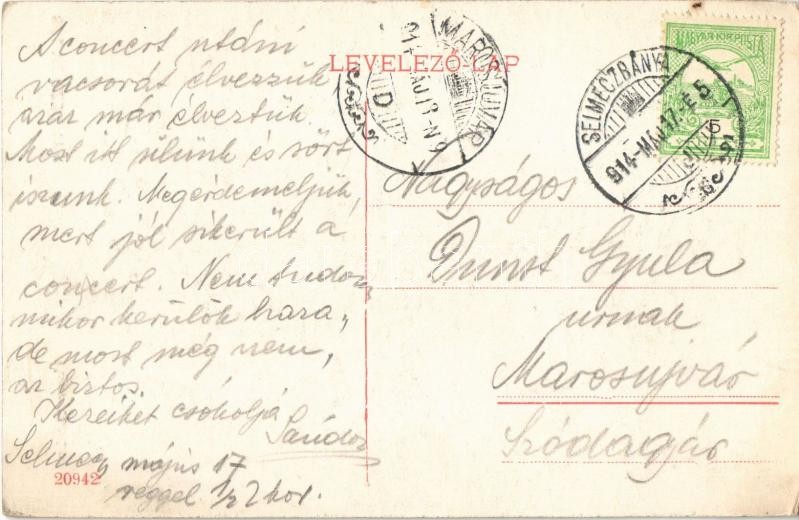 A concert utáni
vacsorát élvezzük
azaz már élveztük.
Most itt ülünk és sört
iszunk. Megérdemeljük,
mert jól sikerült a
concert. Nem tudom
mikor kerülök haza„
de most még nem,
az biztos.
Kezeiket csókolja
Sándor
Selmecz május 17
reggel 1/2 2 kor.
20942
LEVELEZŐ-LAP
MAROSUJVÁR
914 MÁJ 18 N 9
D
SELMECZBÁNYA
914 MÁJ 17 E 5
MAGYAR KIR. POSTA
5
Nagyságos
Gyula
urnak
Marosujvár
Szódagyár